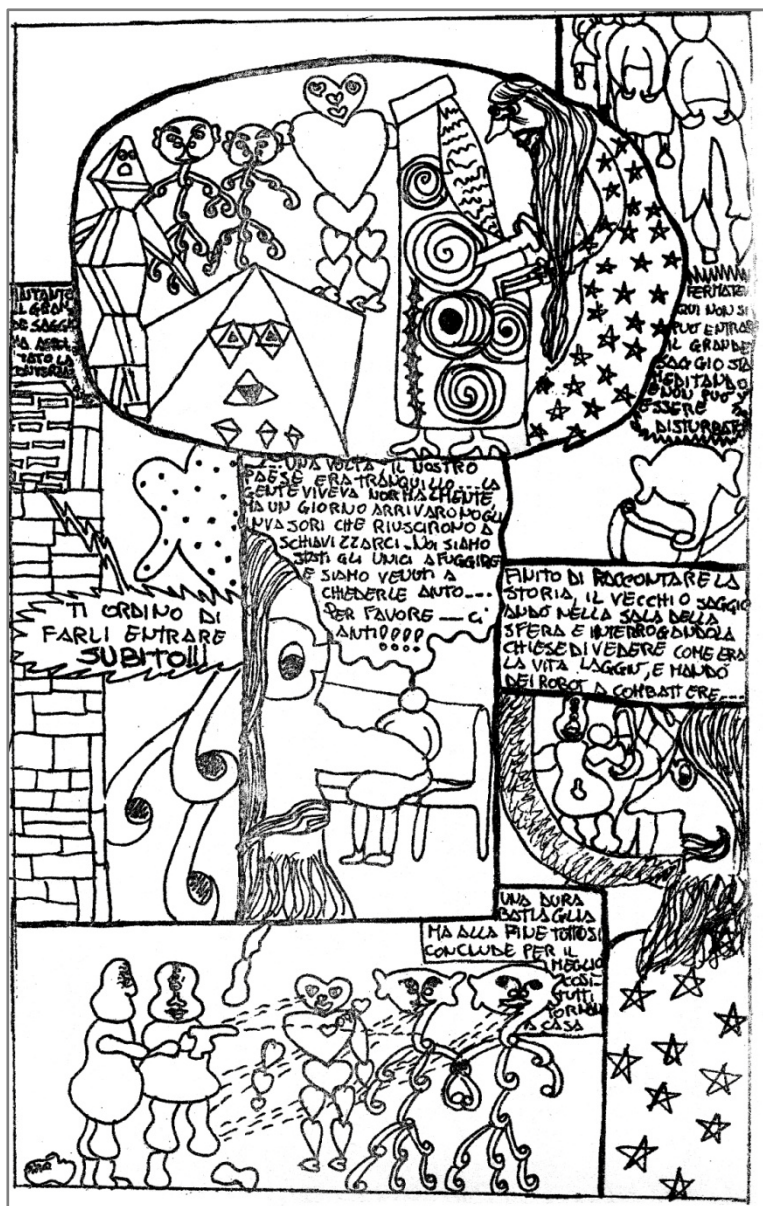 FERMATEVI
QUI NON SI
PUÒ ENTRARE
IL GRANDE
SAGGIO STA
MEDITANDO
E NON PUÒ
ESSERE
DISTURBATO
INTANTO
IL GRAN
DE SAGGIO
HA ASCOL
TATO LA
TI ORDINO DI
FARLI ENTRARE
SUBITO!!!
....UNA VOLTA IL NOSTRO
PAESE ERA TRANQUILLO....LA
GENTE VIVEVA NORMALMENTE
MA UN GIORNO ARRIVARONO GLI
INVASORI CHE RIUSCIRONO A
SCHIAVIZZARCI..NOI SIAMO
STATI GLI UNICI A FUGGIRE
E SIAMO VENUTI A
CHIEDERLE AIUTO....
PER FAVORE ... CI
AIUTI!!!!
FINITO DI RACCONTARE LA
STORIA, IL VECCHIO SAGGIO
ANDÒ NELLA SALA DELLA
SFERA E INTERROGANDOLA
CHIESE DI VEDERE COME ERA
LA VITA LAGGIÙ, E MANDÒ
DEI ROBOT A COMBATTERE....
UNA DURA
BATTAGLIA
MA ALLA FINE TUTTO SI
CONCLUDE PER IL
MEGLIO
COSÌ
TUTTI
TORNANO
A CASA